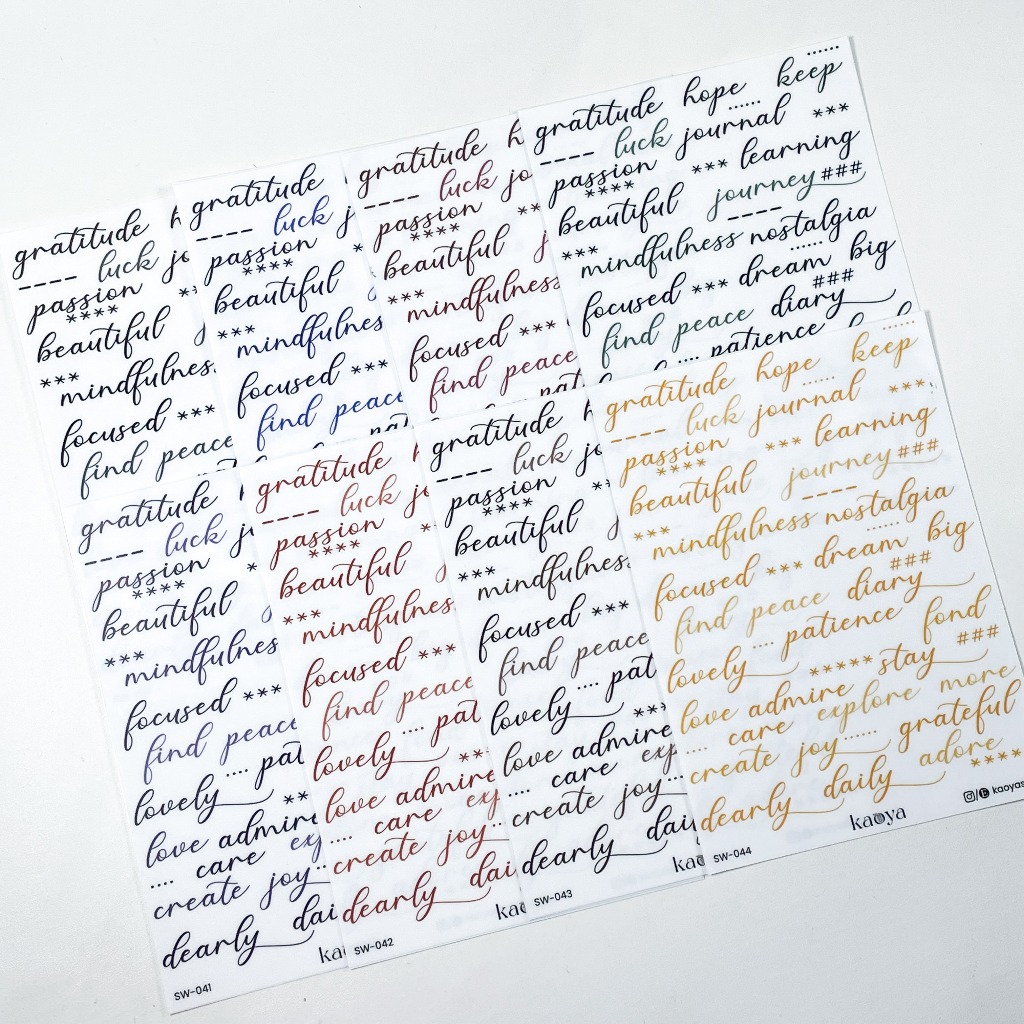 gratitude h
---- luck jo
passion **
****
beautiful
*** mindfulnes
focused ***
find peace
gratitude
---- luck j
passion *
****
beautiful
*** mindfulnes
focused ***
find peace
gratitude h
---- luck jo
passion **
****
beautiful j
*** mindfulness
focused ***
find peace
.... pat
gratitude hope ...... keep
---- luck ...... journal ***
passion *** learning
****
beautiful journey ###
*** mindfulness ---- nostalgia
focused *** dream ...... big
find peace diary ###
.... patience
gratitude
---- luck j
passion *
****
beautiful
*** mindfulnes
focused ***
find peace
lovely .... pat
love admir **
.... care ex
create joy ..
dearly dai
ka
SW-041
gratitude h
---- luck jo
passion *
****
beautiful
*** mindfulnes
focused ***
find peace
lovely .... pat
love admire **
.... care exp
create joy ...
dearly dai
kao
SW-042
gratitude h
---- luck jo
passion **
****
beautiful j
*** mindfulness
focused ***
find peace
lovely .... pat
love admire ***
.... care exp
create joy ....
dearly dai
kao
SW-043
gratitude hope ...... keep
---- luck ...... journal ***
passion *** learning
****
beautiful journey ###
*** mindfulness ---- nostalgia
focused *** dream ...... big
find peace diary ###
lovely .... patience fond
love admire ***** stay ###
.... care explore more
create joy ...... grateful
dearly daily adore ****
kaoya
kaoyas
SW-044